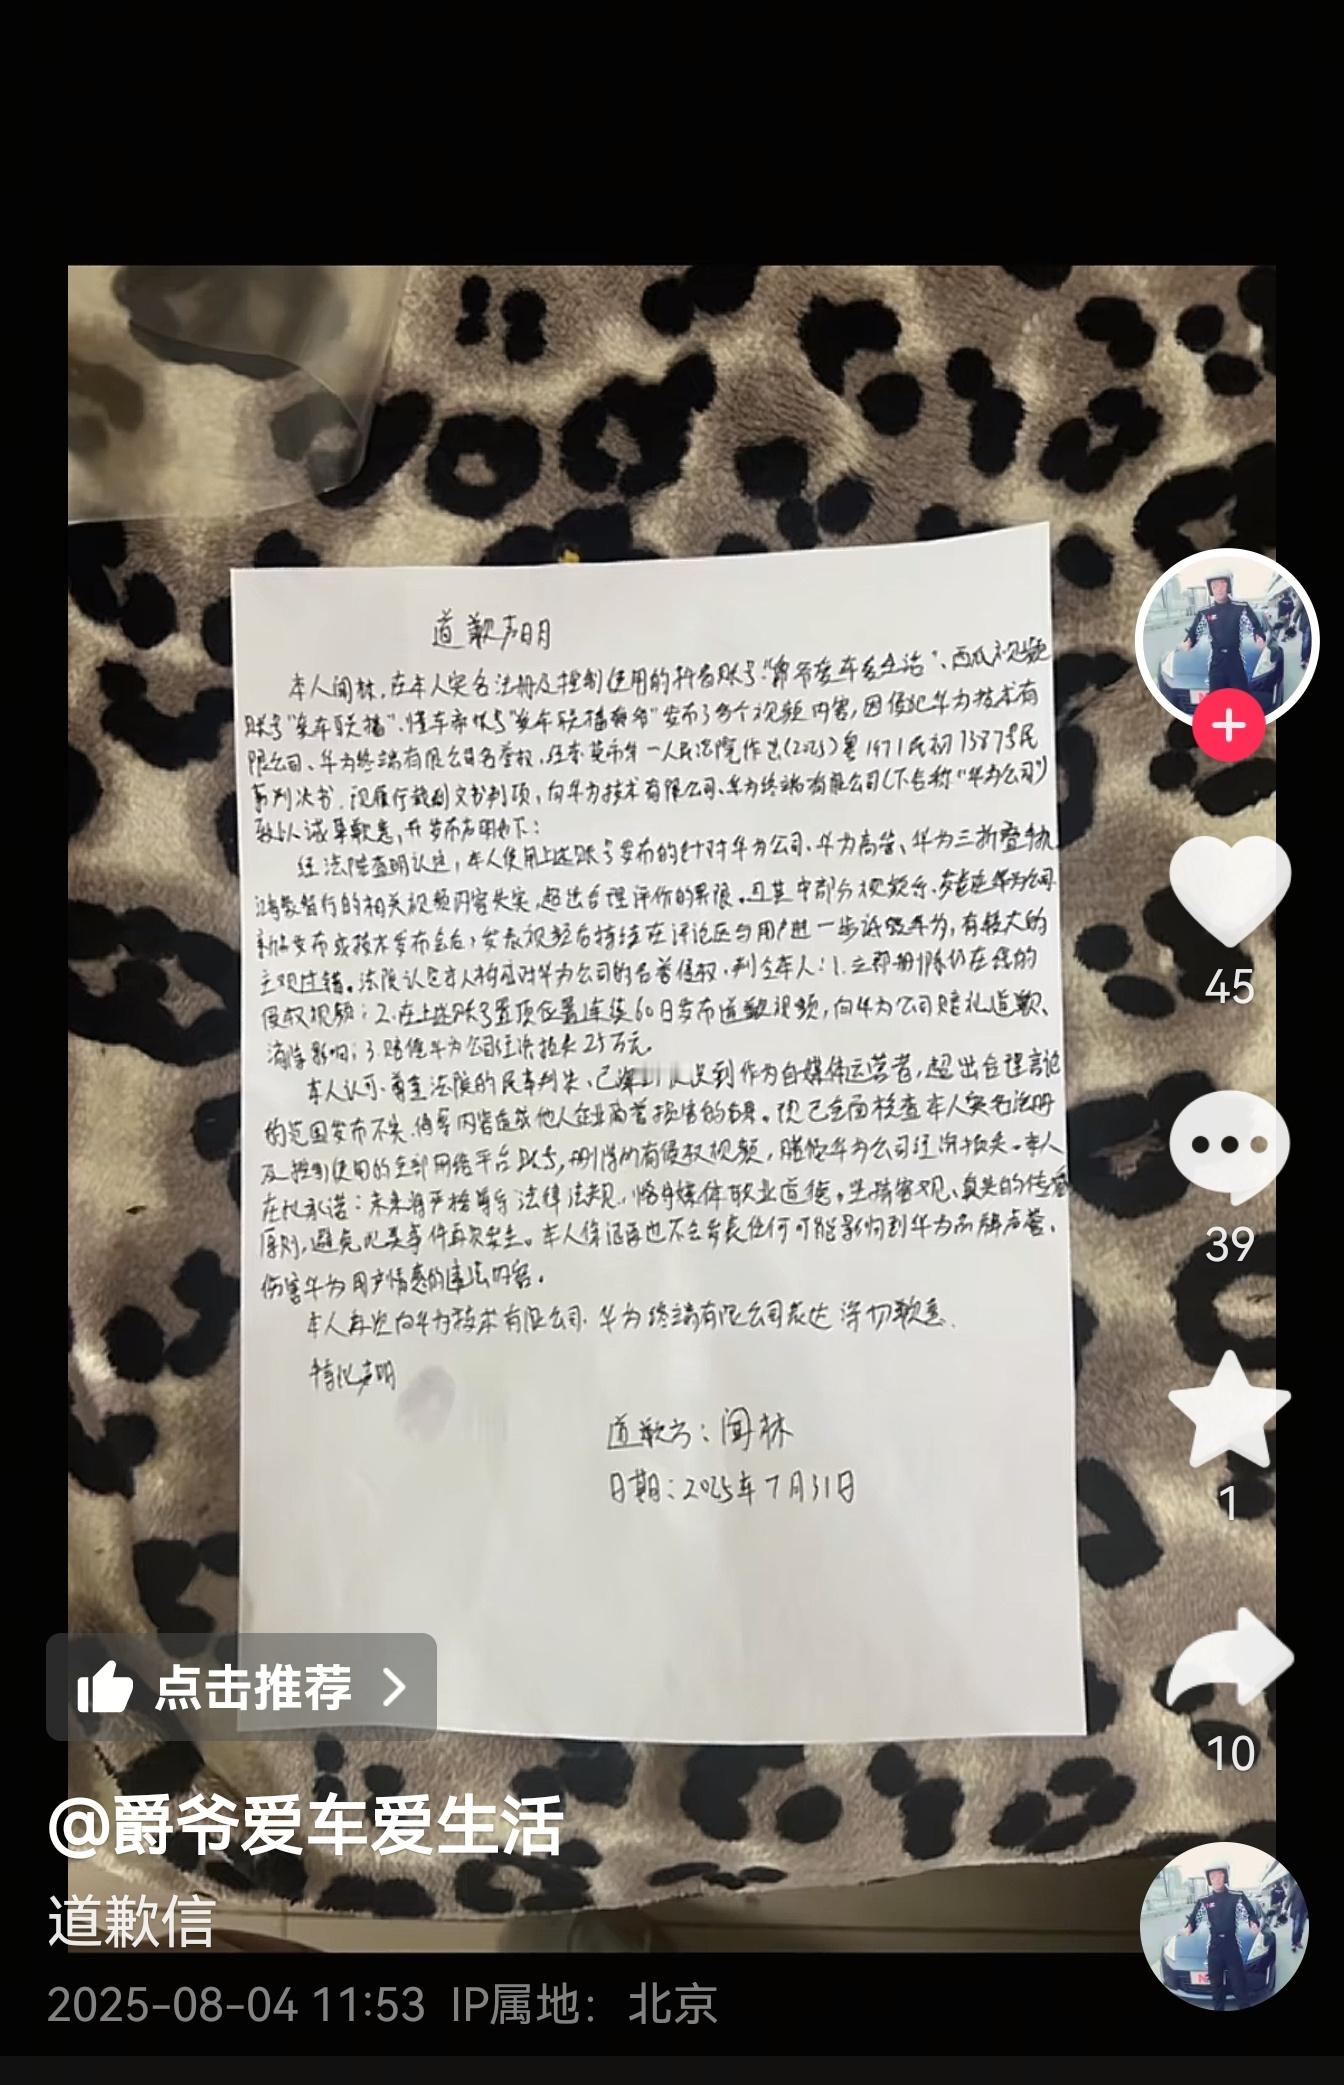 道歉声明
本人闻林,在本人实名注册及控制使用的抖音账号“爵爷爱车爱生活”、西瓜视频
账号“爱车联播”、懂车帝帐号“爱车联播”发布了多个视频内容,因侵犯华为技术有
限公司、华为终端有限公司名誉权,经东莞市第一人民法院作出(2025)粤1971民初7387号民
事判决书,现履行裁判文书判项,向华为技术有限公司、华为终端有限公司(下合称“华为公司”)
致以诚挚歉意,并发布声明如下:
经法院查明认定,本人使用上述账号发布的针对华为公司、华为高管、华为三折叠手机、
鸿蒙智行的相关视频内容失实,超出合理评价的界限。且其中部分视频系 华为公司
新品发布或技术发布会后,发表视频后持续在评论区与用户进一步诋毁华为,有较大的
主观过错。法院认定本人构成对华为公司的名誉侵权,判令本人:1.立即删除仍在线的
侵权视频;2.在上述账号置顶位置连续60日发布道歉视频,向华为公司赔礼道歉、
消除影响;3.赔偿华为公司经济损失25万元。
本人认可、尊重法院的民事判决,已深 认识到作为自媒体运营者,超出合理言论
的范围发布不实、侮辱内容造成他人企业商誉损害的后果。现已全面核查本人实名注册
及控制使用的全部网络平台账号,删除所有侵权视频,赔偿华为公司经济损失。本人
在此承诺:未来将严格遵守法律法规,恪守媒体职业道德,坚持客观、真实的传播
原则,避免此类事件再次发生。本人保证再也不会发表任何可能影响到华为品牌声誉、
伤害华为用户情感的违法内容。
本人再次向华为技术有限公司、华为终端有限公司表达深切歉意。
特此声明
道歉方:闻林
日期:2025年7月31日
45
39
1
10
点击推荐
@爵爷爱车爱生活
道歉信
2025-08-04 11:53 IP属地:北京